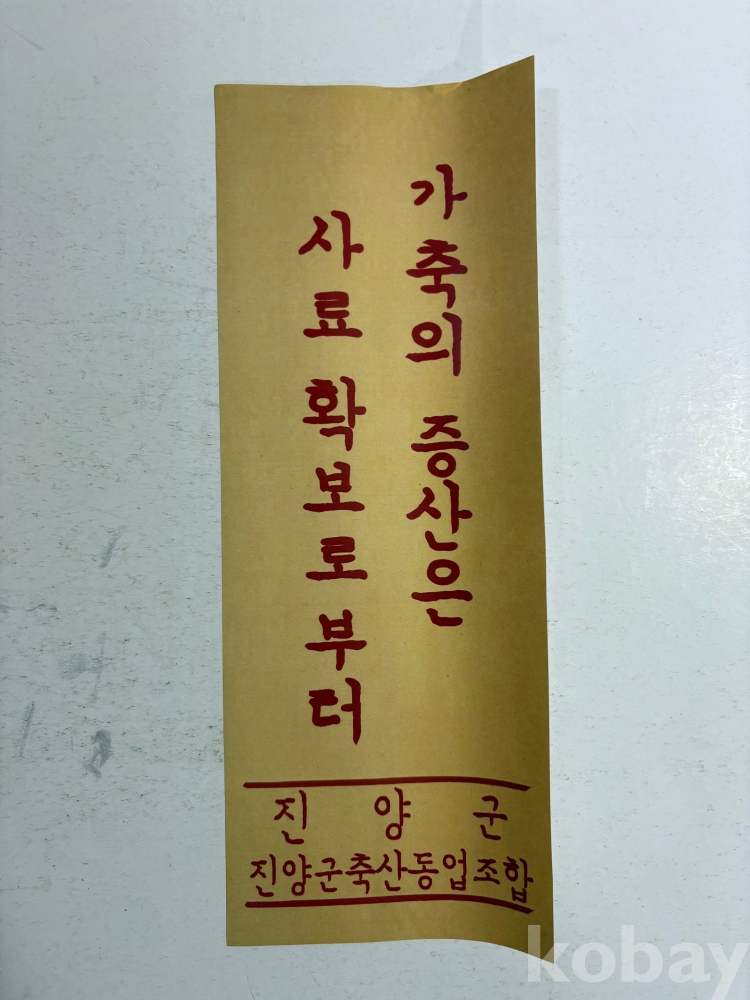 가축의 증산은
사료 확보로부터
진양군
진양군축산동업조합
kobay